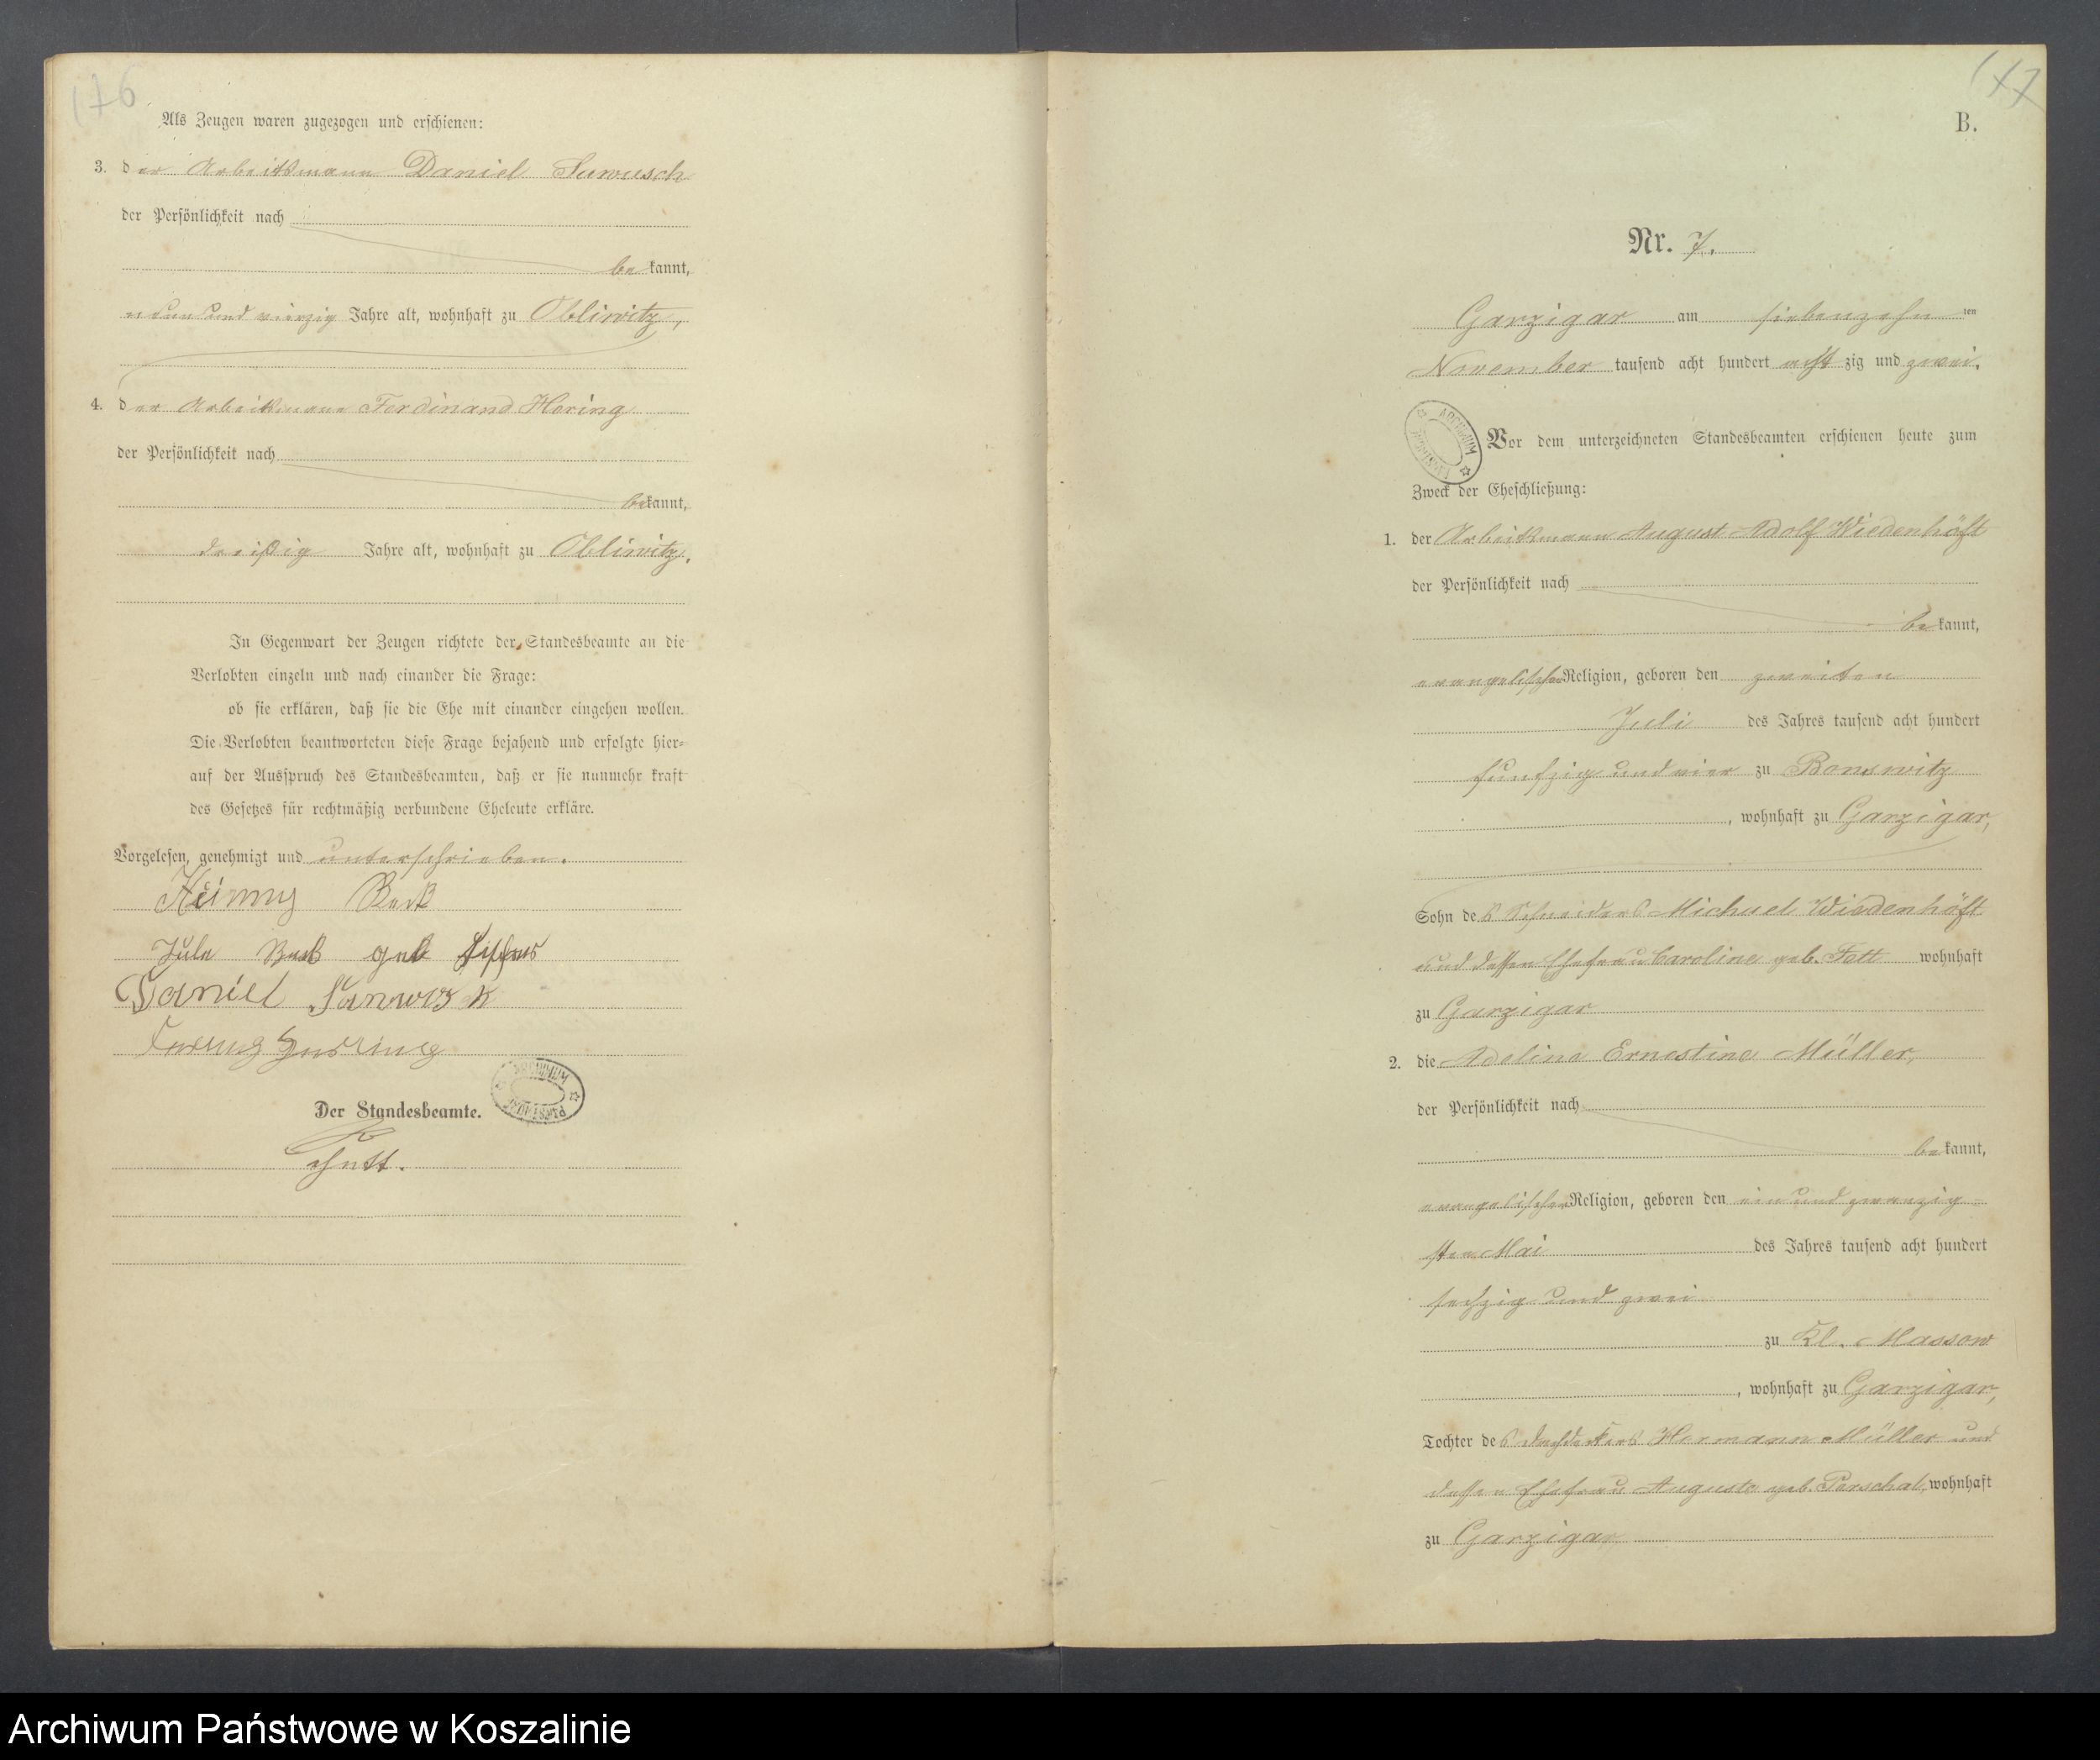 176
Als Zeugen waren zugezogen und erschienen:
3. der Arbeitsmann Daniel Suwusch
der Persönlichkeit nach
bekannt,
neun und vierzig Jahre alt, wohnhaft zu Obliwitz,
4. der Arbeitsmann Ferdinand Hering
der Persönlichkeit nach
bekannt,
dreißig Jahre alt, wohnhaft zu Obliwitz.
In Gegenwart der Zeugen richtete der Standesbeamte an die
Verlobten einzeln und nach einander die Frage:
ob sie erklären, daß sie die Ehe mit einander eingehen wollen.
Die Verlobten beantworteten diese Frage bejahend und erfolgte hier=
auf der Ausspruch des Standesbeamten, daß er sie nunmehr kraft
des Gesetzes für rechtmäßig verbundene Eheleute erkläre.
Vorgelesen, genehmigt und unterschrieben.
Daniel
Der Standesbeamte.
177
B.
Nr. 7.
Garzigar am siebenzehn ten
November tausend acht hundert achtzig und zwei.
Vor dem unterzeichneten Standesbeamten erschienen heute zum
Zweck der Eheschließung:
1. der Arbeitsmann August Adolf Wiedenhöft
der Persönlichkeit nach
bekannt,
evangelischer Religion, geboren den zweiten
Juli des Jahres tausend acht hundert
funfzig und vier zu Bonswitz
, wohnhaft zu Garzigar,
Sohn des Schneiders Michael Wiedenhöft
und dessen Ehefrau Caroline geb. Fett wohnhaft
zu Garzigar
2. die Adeline Ernestine Müller,
der Persönlichkeit nach
bekannt,
evangelischer Religion, geboren den ein und zwanzig=
sten Mai des Jahres tausend acht hundert
sechzig und zwei
zu Kl. Massow
, wohnhaft zu Garzigar,
Tochter des Dachdeckers Hermann Müller und
dessen Ehefrau Auguste geb. Perschal, wohnhaft
zu Garzigar
Archiwum Państwowe w Koszalinie